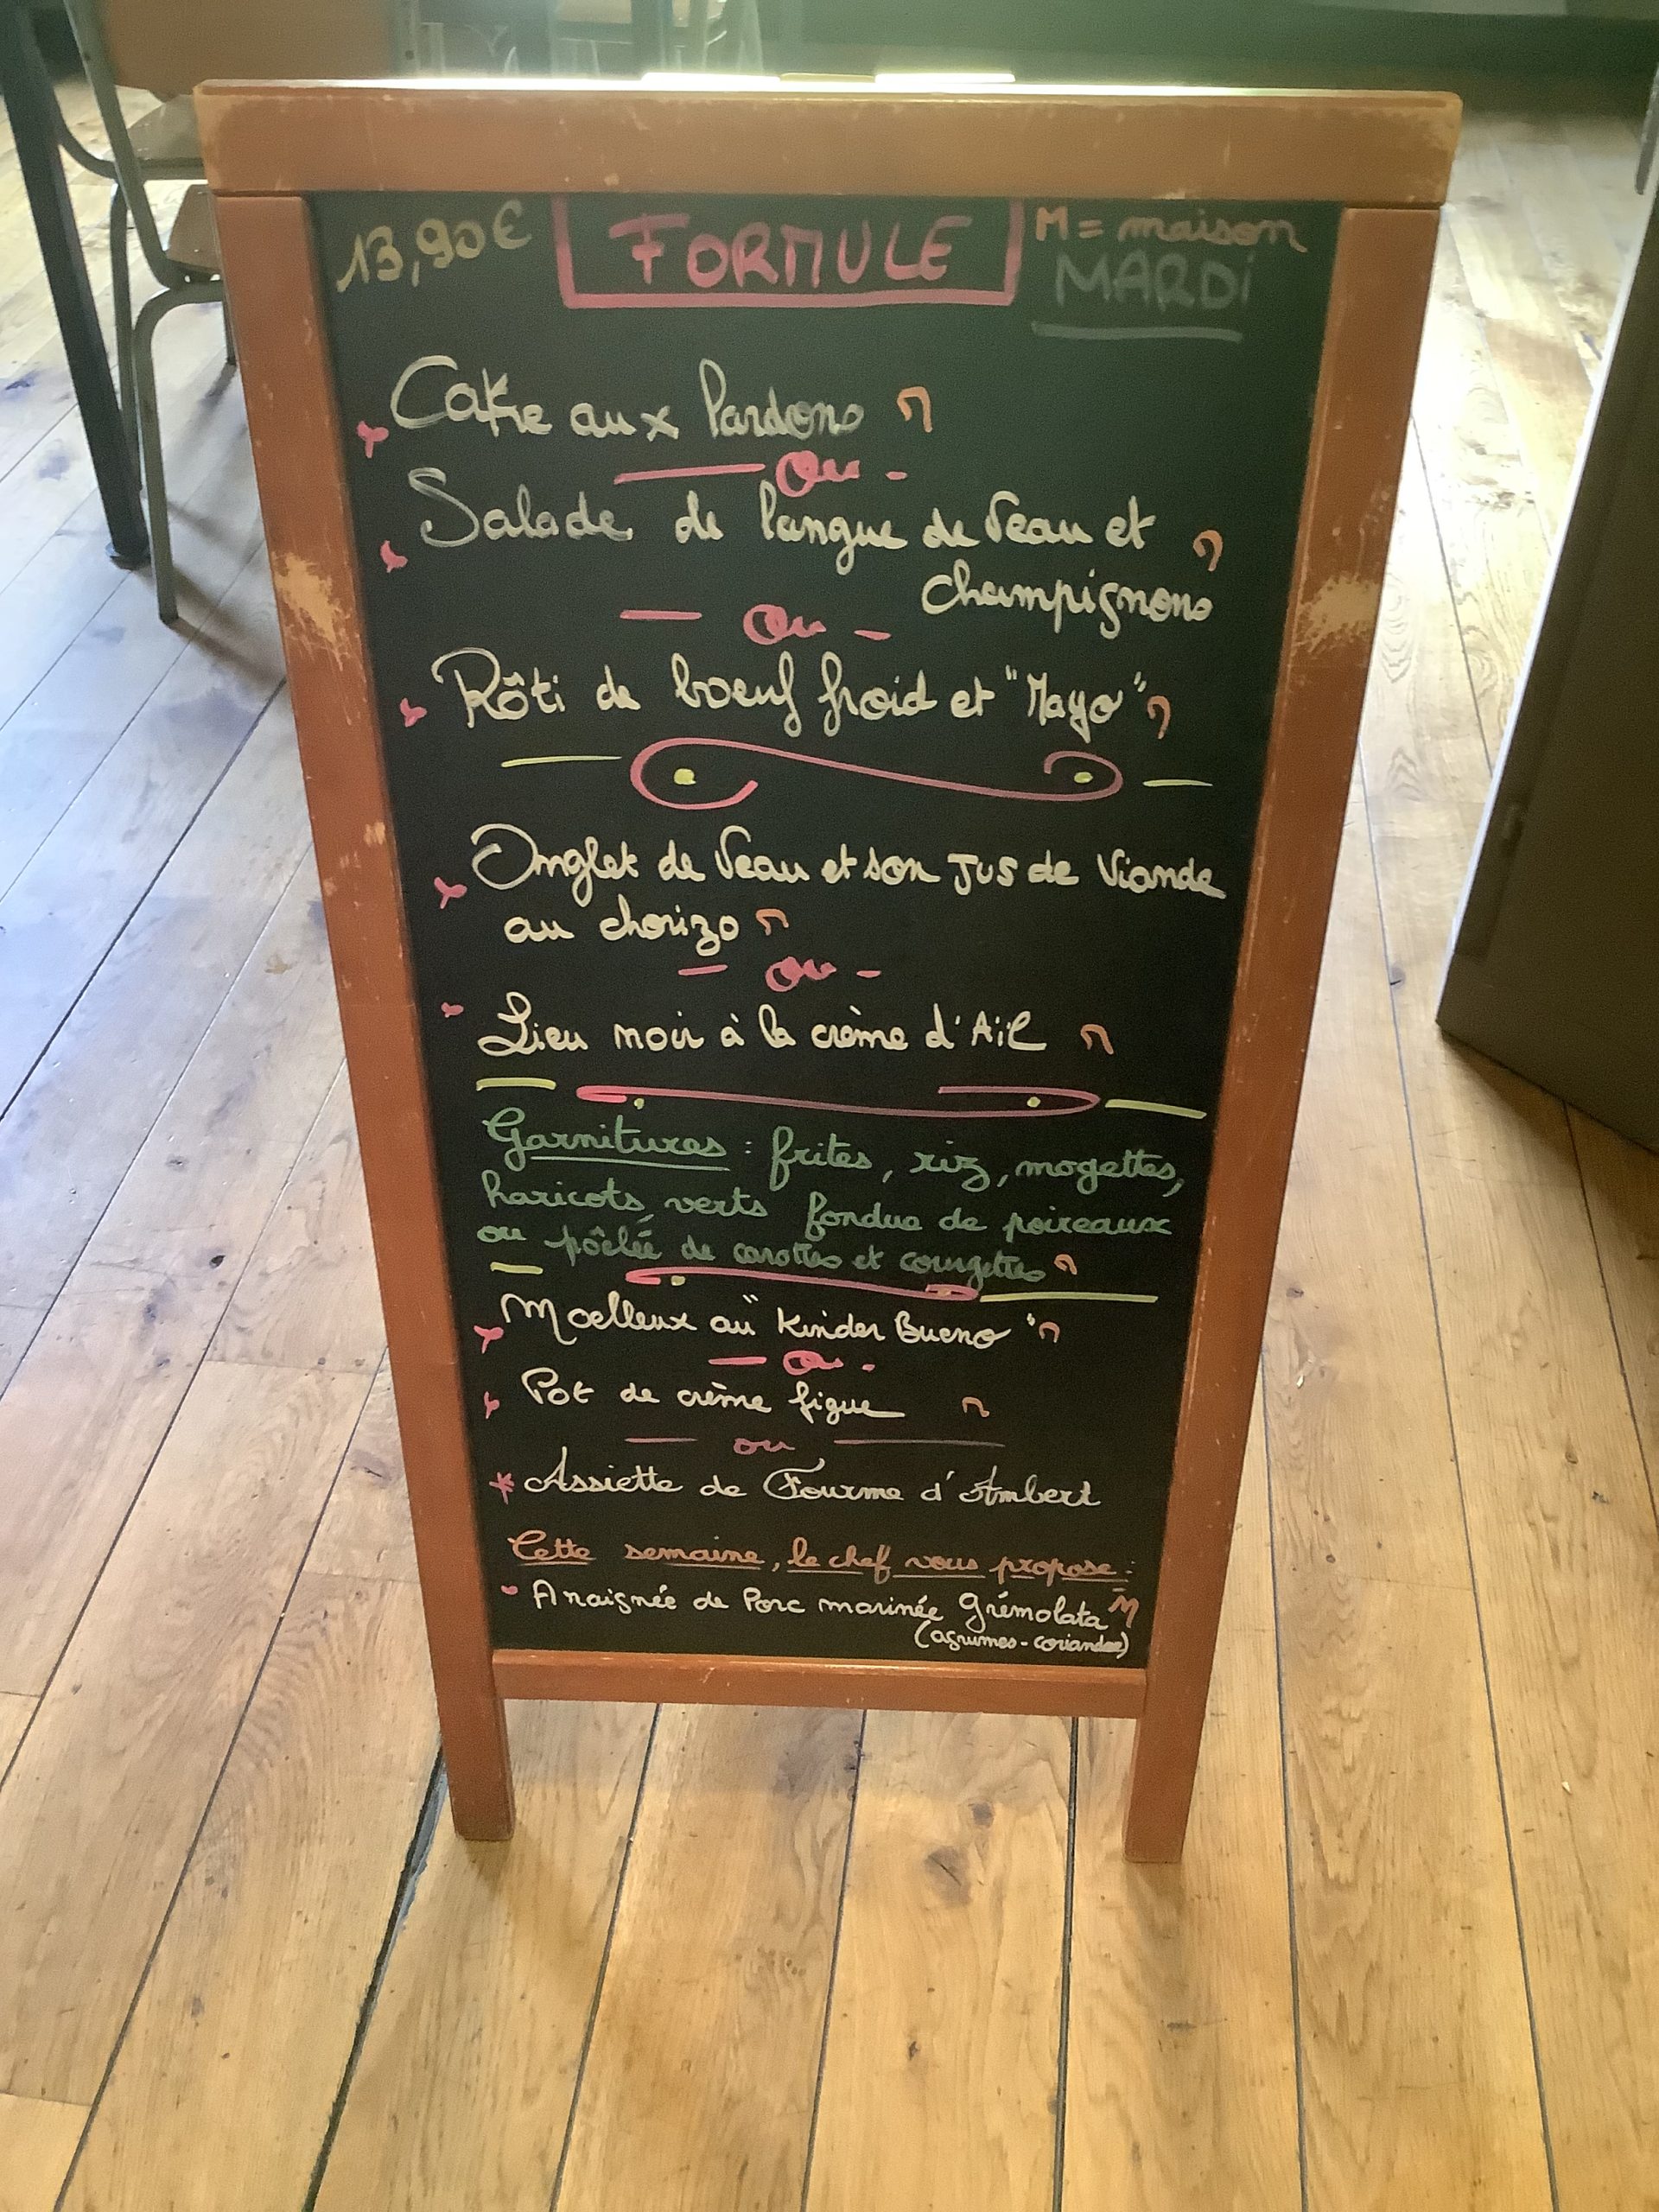 13,90€ FORMULE M = maison
MARDi
Cake aux lardons M
Ou
Salade de langue de Veau et M
champignons
Ou
Rôti de boeuf froid et "Mayo" M
Onglet de Veau et son Jus de Viande
au chorizo M
Ou
Lieu noir à la crème d'Ail M
Garnitures : frites, riz, mogettes,
haricots verts fondue de poireaux
ou pôêlée de carottes et courgettes M
Moelleux au "Kinder Bueno" M
Ou
Pot de crème figue M
ou
* Assiette de Fourme d'Ambert
Cette semaine, le chef vous propose :
Araignée de Porc marinée Grémolata M
(agrumes - coriandre)